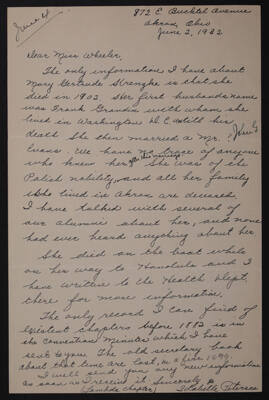 June 4
872 E. Buchtel Avenue
Akron, Ohio
June 2, 1932
Dear Miss Wheeler,
The only information I have about
Mary Gertrude is that she
died in 1902. Her first husband's name
was Frank Grandin with whom she
lived in Washington D.C. until his
death. She then married a Mr. John G.
Evans. We have no trace of anyone
who knew her after this marriage. She was of the
Polish nobility, and all her family
who lived in Akron are deceased.
I have talked with several of
our alumni about her, and none
had ever heard anything about her.
She died on the boat while
on her way to Honolulu and I
have written to the Health Dept.
there for more information.
The only record I can find of
existent chapters before 1882 is in
the Convention Minutes which I have
sent to you. The old secretary book
about that time are lost, as is
I will send you any new information
as soon as I receive it. Sincerely
Lambda chapter